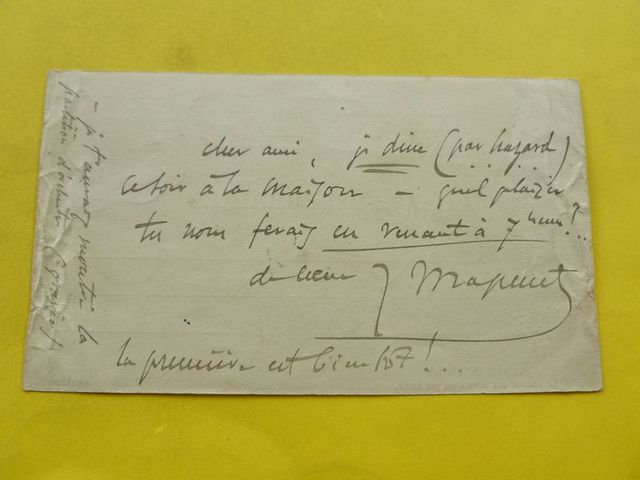 cher ami, je dine (par hazard)
ce soir à la maison – quel plaisir
tu nous ferais en venant à 7 heures!?...
de cœur J Massenet
la première est bientôt!...
– je t'aurais montré la
partition d'orchestre (gravée)!